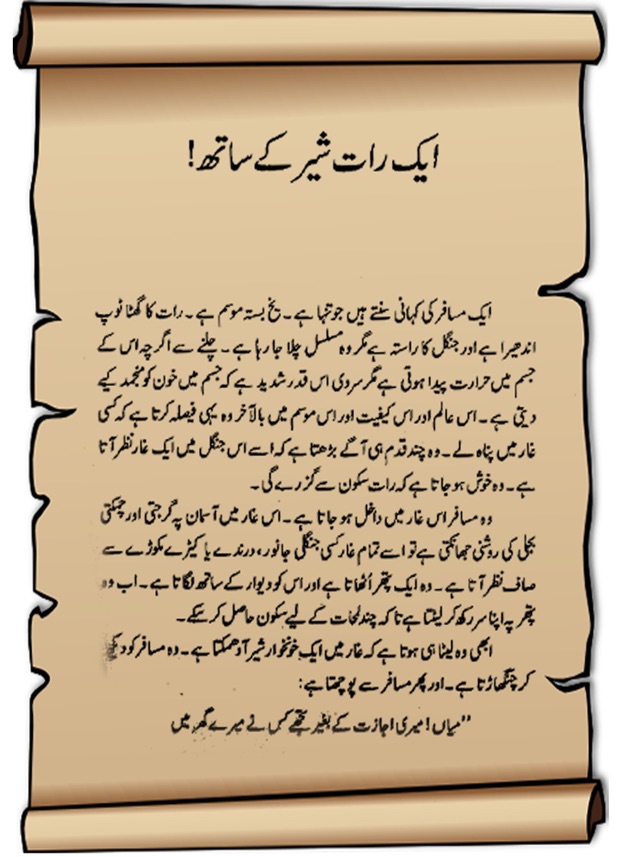 ایک رات شیر کے ساتھ!
ایک مسافر کی کہانی سنتے ہیں جو تنہا ہے۔ یخ بستہ موسم ہے۔ رات کا گھٹا ٹوپ
اندھیرا ہے اور جنگل کا راستہ ہے مگر وہ مسلسل چلا جا رہا ہے۔ چلنے سے اگرچہ اس کے
جسم میں حرارت پیدا ہوتی ہے مگر سردی اس قدر شدید ہے کہ جسم میں خون کو منجمد کیے
دیتی ہے۔ اس عالم اور اس کیفیت اور اس موسم میں بالآخر وہ یہی فیصلہ کرتا ہے کہ کسی
غار میں پناہ لے۔ وہ چند قدم ہی آگے بڑھتا ہے کہ اسے اس جنگل میں ایک غار نظر آتا
ہے۔ وہ خوش ہو جاتا ہے کہ رات سکون سے گزرے گی۔
وہ مسافر اس غار میں داخل ہو جاتا ہے۔ اس غار میں آسمان پہ گرجتی اور چمکتی
بجلی کی روشنی جھانکتی ہے تو اسے تمام غار کسی جنگلی جانور، درندے یا کیڑے مکوڑے سے
صاف نظر آتا ہے۔ وہ ایک پتھر اُٹھاتا ہے اور اس کو دیوار کے ساتھ لگاتا ہے۔ اب وہ
پتھر پہ اپنا سر رکھ کر لیٹتا ہے تا کہ چند لمحات کے لیے سکون حاصل کر سکے۔
ابھی وہ لیٹا ہی ہوتا ہے کہ غار میں ایک خونخوار شیر آ دھمکتا ہے۔ وہ مسافر کو دیکھ
کر چنگھاڑتا ہے۔ اور پھر مسافر سے پوچھتا ہے:
”میاں! میری اجازت کے بغیر تجھے کس نے میرے گھر میں